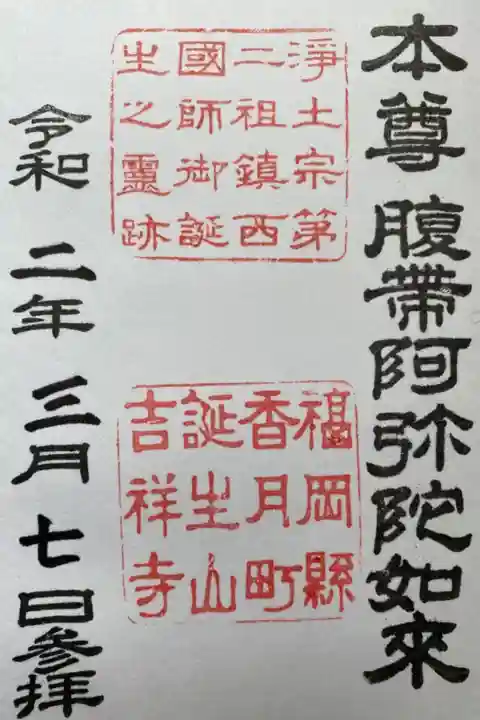 本尊 腹帶阿弥陀如來
淨土宗第
二祖鎮西
國師御誕
生之靈跡
福岡縣
香月町
誕生山
吉祥寺
令和 二年 三月 七日参拝